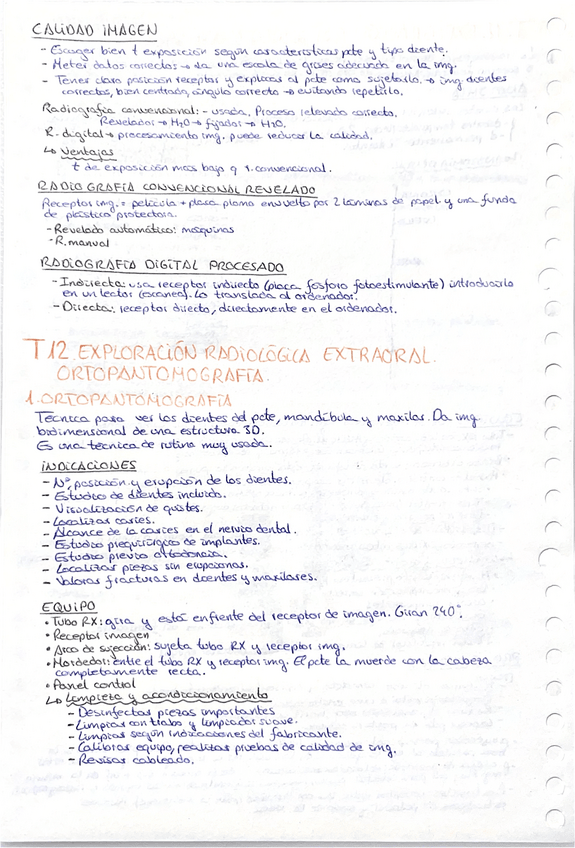 CALIDAD IMAGEN
- Escoger bien t exposición según características pcte y tipo diente.
- Meter datos correctos → da una escala de grises adecuada en la img.
- Tener claro posición receptor y explicar al pcte como sujetarlo. → img dientes
correctos, bien centrada, ángulo correcto → evitando repetirlo.
Radiografía convencional: - usada, Proceso revelado correcto.
Revelador → H2O → fijador → H2O.
R. digital → procesamiento img. puede reducir la calidad.
↳ Ventajas
t de exposición más bajo q r. convencional.
RADIOGRAFÍA CONVENCIONAL REVELADO
Receptor img. = película + placa plomo envuelto por 2 láminas de papel y una funda
de plástico protectora.
- Revelado automático: máquinas
- R. manual
RADIOGRAFÍA DIGITAL PROCESADO
- Indirecta: usa receptor indirecto (placa fósforo fotoestimulante) introducirlo
en un lector (escáner). Lo translada al ordenador.
- Directa: receptor directo, directamente en el ordenador.
T.12. EXPLORACIÓN RADIOLÓGICA EXTRAORAL.
ORTOPANTOMOGRAFÍA.
1. ORTOPANTOMOGRAFÍA
Técnica para ver los dientes del pcte, mandíbula y maxilar. Da img.
bidimensional de una estructura 3D.
Es una técnica de rutina muy usada.
INDICACIONES
- Nº, posición y erupción de los dientes.
- Estudio de dientes incluido.
- Visualización de quistes.
- Localizar caries.
- Alcance de la caries en el nervio dental.
- Estudio prequirúrgico de implantes.
- Estudio previo ortodoncia.
- Localizar piezas sin erupcionar.
- Valorar fracturas en dientes y maxilares.
EQUIPO
• Tubo RX: gira y está enfrente del receptor de imagen. Giran 240°.
• Receptor imagen
• Arco de sujección: sujeta tubo RX y receptor img.
• Mordedor: entre el tubo RX y receptor img. El pcte la muerde con la cabeza
completamente recta.
• Panel control
↳ Limpieza y acondicionamiento
- Desinfectar piezas importantes
- Limpiar con trapo y limpiador suave.
- Limpiar según indicaciones del fabricante.
- Calibrar equipo, realizar pruebas de calidad de img.
- Revisar cableado.